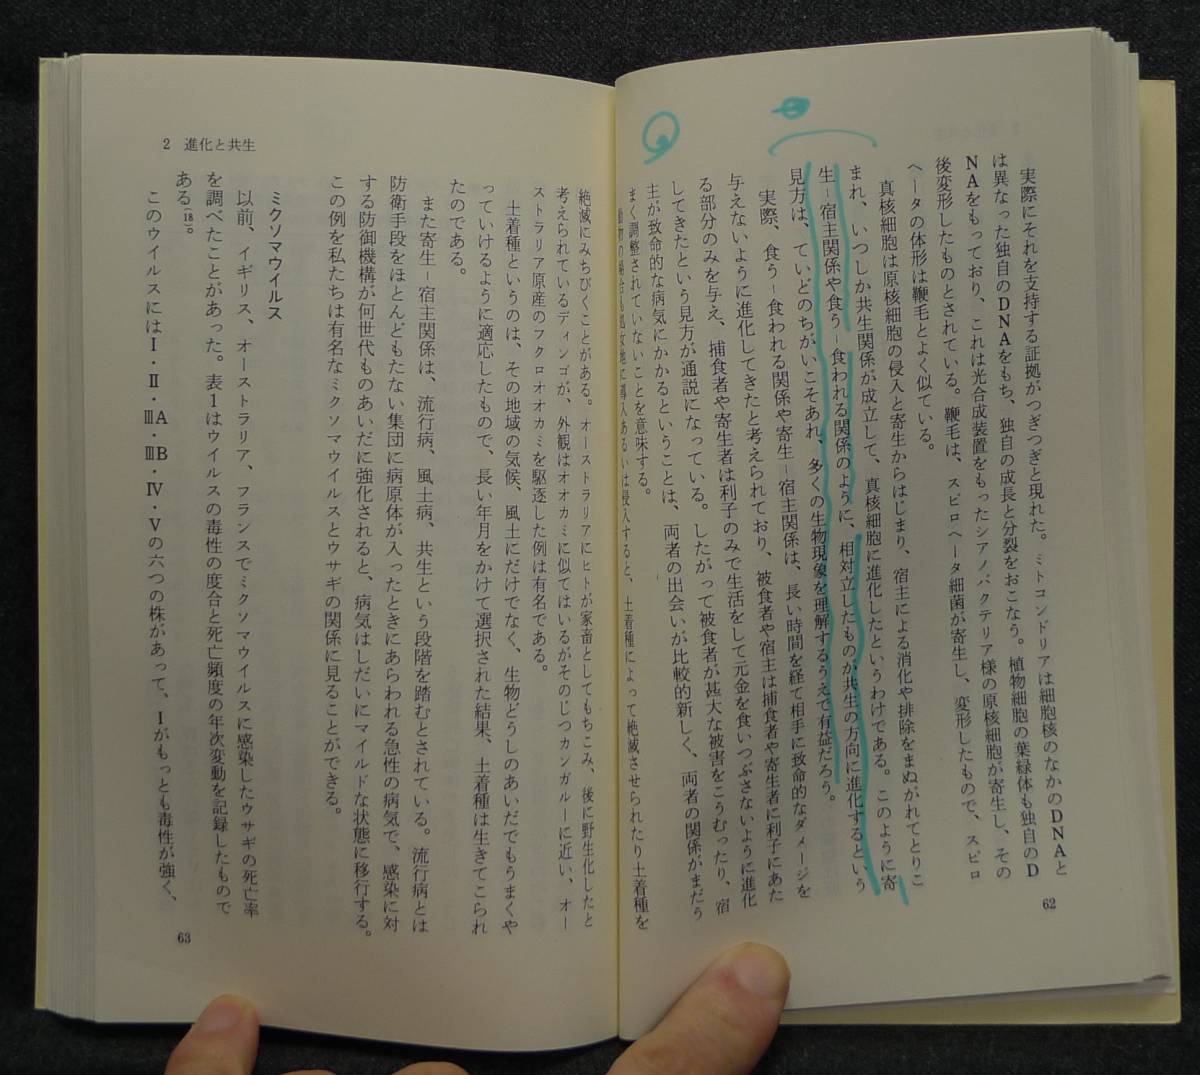 実際にそれを支持する証拠がつぎつぎと現れた。ミトコンドリアは細胞核のなかのDNAと
は異なった独自のDNAをもち、独自の成長と分裂をおこなう。植物細胞の葉緑体も独自のD
NAをもっており、これは光合成装置をもったシアノバクテリア様の原核細胞が寄生し、その
後変形したものとされている。鞭毛は、スピロヘータ細菌が寄生し、変形したもので、スピロ
ヘータの体形は鞭毛とよく似ている。
真核細胞は原核細胞の侵入と寄生からはじまり、宿主による消化や排除をまぬがれてとりこ
まれ、いつしか共生関係が成立して、真核細胞に進化したというわけである。このように寄
生－宿主関係や食う－食われる関係のように、相対立したものが共生の方向に進化するという
見方は、ていどのちがいこそあれ、多くの生物現象を理解するうえで有益だろう。
実際、食う－食われる関係や寄生－宿主関係は、長い時間を経て相手に致命的なダメージを
与えないように進化してきたと考えられており、被食者や宿主は捕食者や寄生者に利子にあた
る部分のみを与え、捕食者や寄生者は利子のみで生活をして元金を食いつぶさないように進化
してきたという見方が通説になっている。したがって被食者が甚大な被害をこうむったり、宿
主が致命的な病気にかかるということは、両者の出会いが比較的新しく、両者の関係がまだう
まく調整されていないことを意味する。
動物の場合も処女地に導入あるいは侵入すると、土着種によって絶滅させられたり土着種を
62
絶滅にみちびくことがある。オーストラリアにヒトが家畜としてもちこみ、後に野生化したと
考えられているディンゴが、外観はオオカミに似てはいるがそのじつカンガルーに近い、オー
ストラリア原産のフクロオオカミを駆逐した例は有名である。
土着種というのは、その地域の気候、風土にだけでなく、生物どうしのあいだでもうまくや
っていけるように適応したもので、長い年月をかけて選択された結果、土着種は生きてこられ
たのである。
また寄生－宿主関係は、流行病、風土病、共生という段階を踏むとされている。流行病とは
防衛手段をほとんどもたない集団に病原体が入ったときにあらわれる急性の病気で、感染に対
する防御機構が何世代ものあいだに強化されると、病気はしだいにマイルドな状態に移行する。
この例を私たちは有名なミクソマウイルスとウサギの関係に見ることができる。
ミクソマウイルス
以前、イギリス、オーストラリア、フランスでミクソマウイルスに感染したウサギの死亡率
を調べたことがあった。表1はウイルスの毒性の度合と死亡頻度の年次変動を記録したもので
ある(18)。
このウイルスにはⅠ・Ⅱ・ⅢA・ⅢB・Ⅳ・Ⅴの六つの株があって、Ⅰがもっとも毒性が強く、
2 進化と共生
63